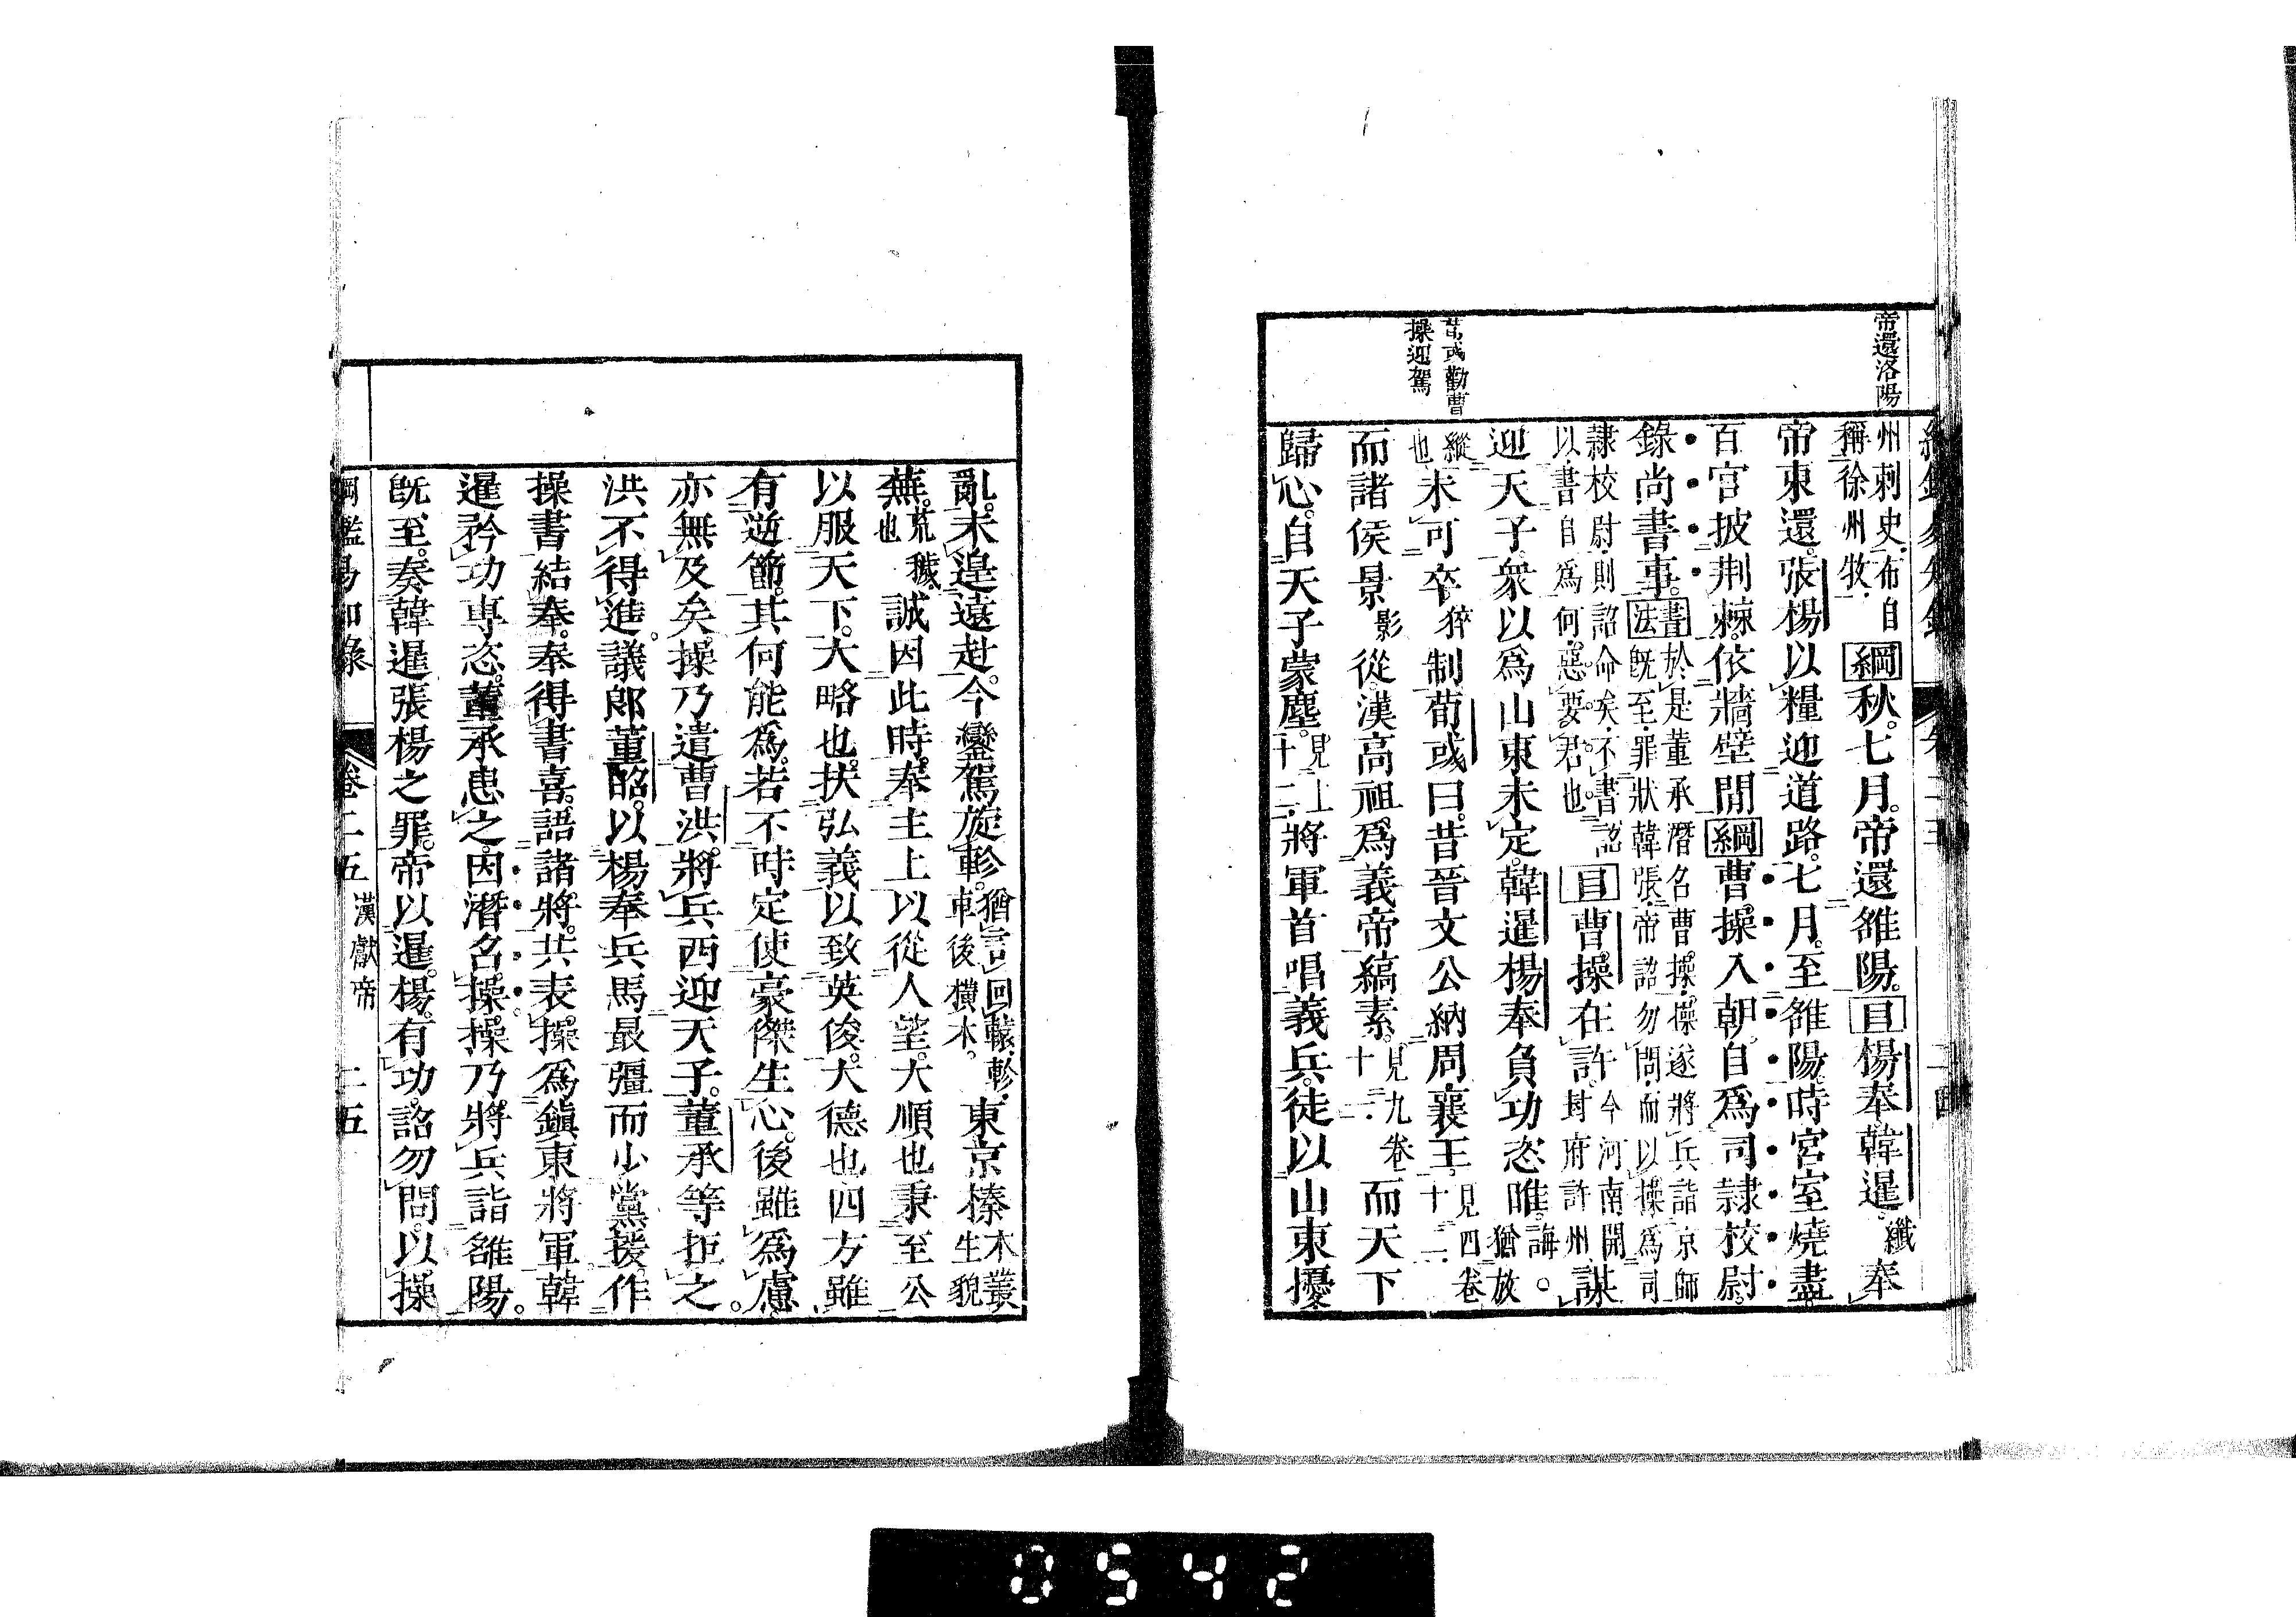 帝還洛陽
荀彧勸曹
操迎駕
州刺史布自
稱徐州牧
綱秋七月帝還雒陽目楊奉韓暹
纖
奉
帝東還張楊以糧迎道路七月至雒陽時宮室燒盡
百官披荆棘依牆壁閒綱曹操入朝自爲司隷校尉
錄尚書事
書於是董承潛名曹操操遂將兵詣京師
法旣至罪狀韓張帝詔勿問而以操爲司
隷校尉則詔命矣不書詔
以書自爲何惡要君也
目曹操在許
許今河南開
封府許州
謀
迎天子衆以爲山東未定韓暹楊奉負功恣睢
誨
猶放
縱
也
未可卒
猝
制荀彧曰昔晉文公納周襄王
見四卷
十二
而諸侯景
影
從漢高祖爲義帝縞素
見九卷
十一
而天下
歸心自天子蒙塵
見上
十二
將軍首唱義兵徒以山東擾
亂未遑遠赴今鑾駕旋軫
猶言回轅軫
車後橫木
東京榛
木叢
生貌
蕪
荒穢
也
誠因此時奉主上以從人望大順也秉至公
以服天下大略也扶弘義以致英俊大德也四方雖
有逆節其何能爲若不時定使豪傑生心後雖爲慮
亦無及矣操乃遣曹洪將兵西迎天子董承等拒之
洪不得進議郎董昭以楊奉兵馬最彊而少黨援作
操書結奉奉得書喜語諸將共表操爲鎮東將軍韓
暹矜功專恣董承患之因潛名操操乃將兵詣雒陽
旣至奏韓暹張楊之罪帝以暹楊有功詔勿問以操
綱鑑易知錄 卷二五 漢獻帝 二五
0542